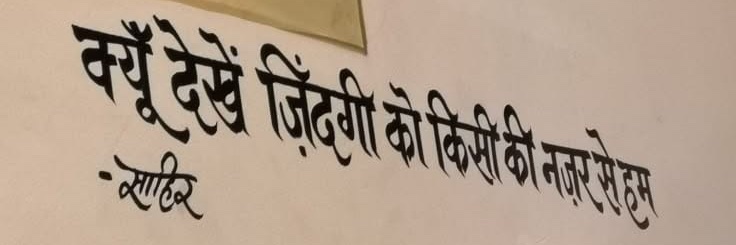 क्यूँ देखें ज़िंदगी को किसी की नज़र से हम
- साहिर